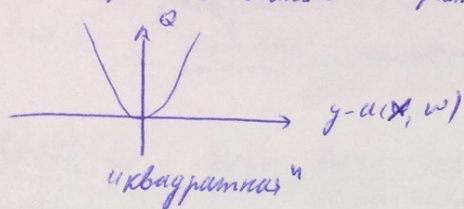 Q
y-a(x, w)
"квадратная"